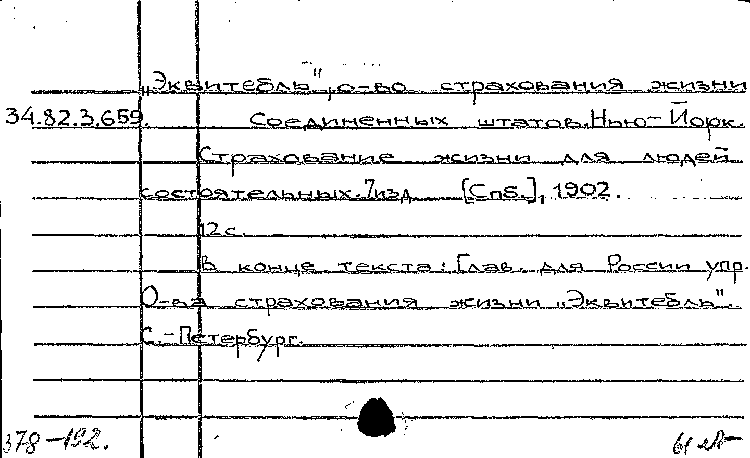 „Эквитебль", о-во страхования жизни
34.82.3.659. Соединенных штатов. Нью-Йорк.
Страхование жизни для людей
состоятельных. 7 изд. [Спб.], 1902.
12 с.
В конце текста: Глав. для России упр.
О-ва страхования жизни „Эквитебль".
С.-Петербург.
378-192.